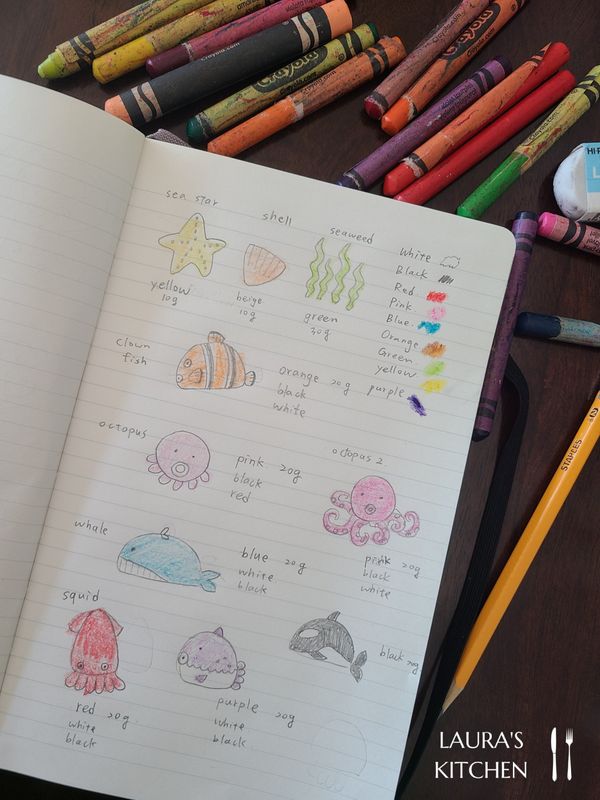 Crayola
Crayola
Crayola
HI-P
sea star
shell
seaweed
yellow
10g
beige
10g
green
30g
White
Black
Red
Pink
Blue
Orange
Green
yellow
purple
clown
fish
orange 20g
black
white
octopus
pink 20g
black
red
octopus 2
pink 20g
black
white
whale
blue 20g
white
black
squid
red 20g
white
black
purple 20g
white
black
black 20g
STAPLES
LAURA'S
KITCHEN